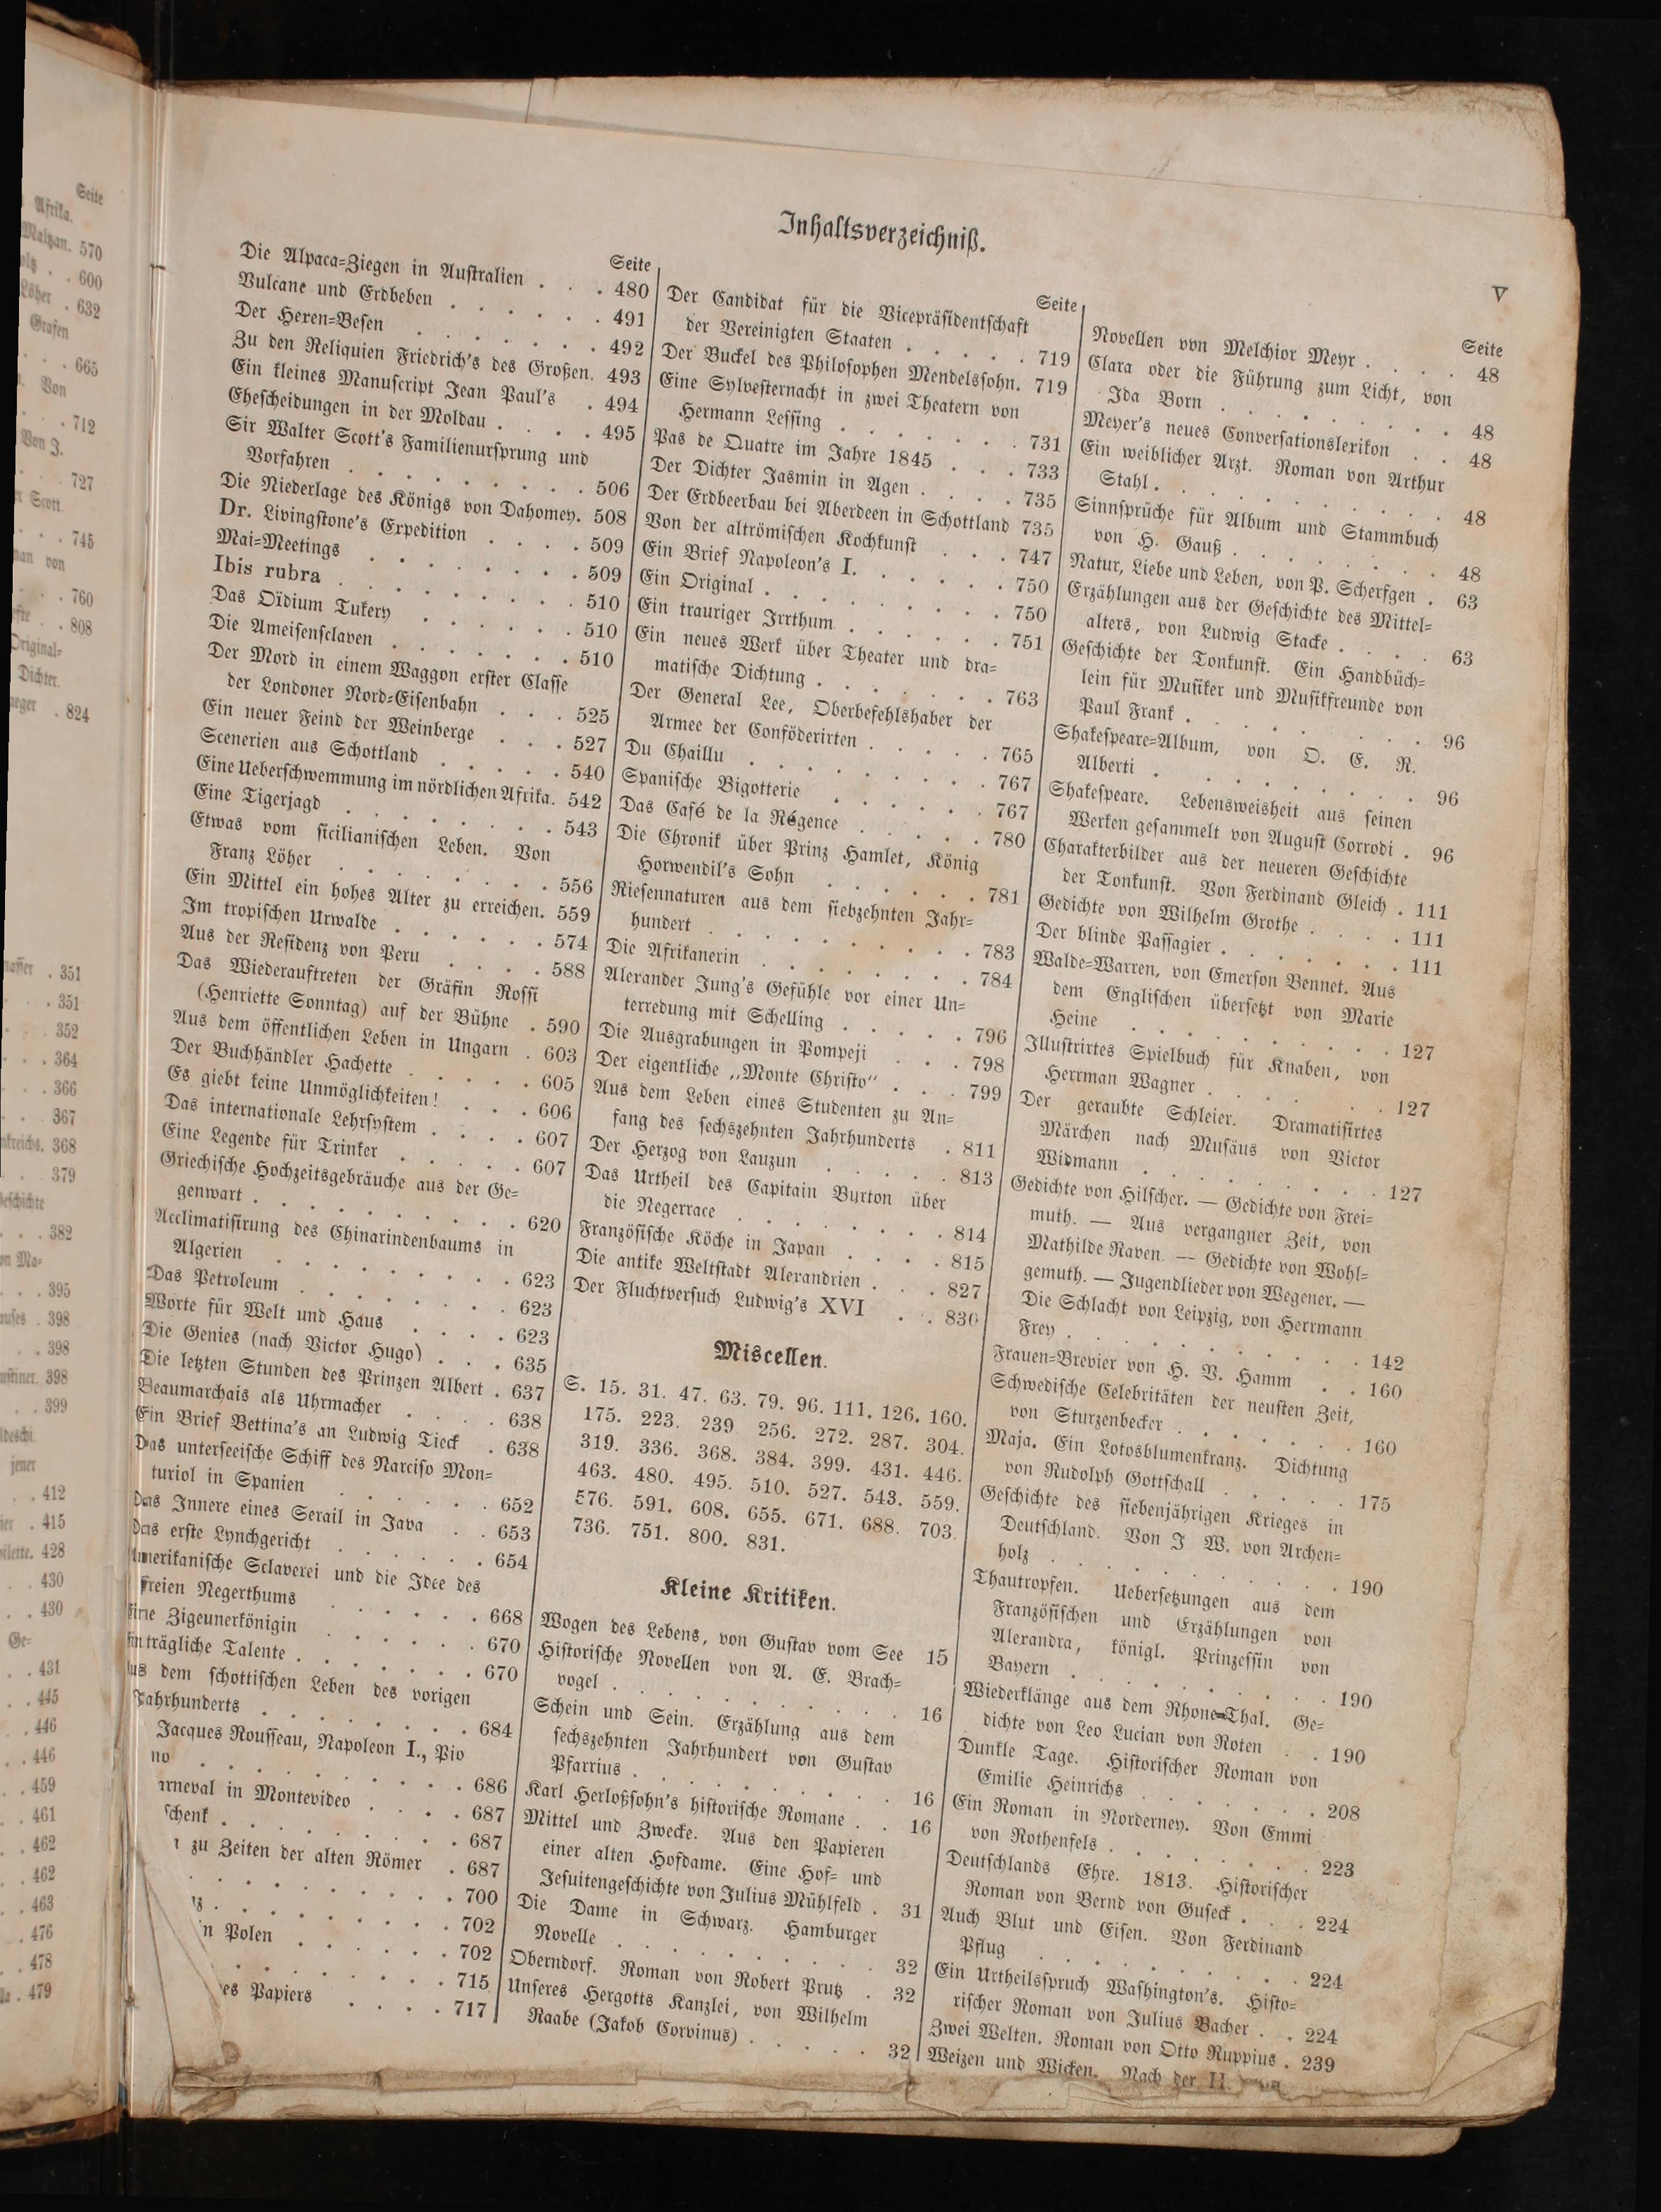 Seite
Afrika.
Maltzan. 570
. . 600
Löher . 632
Grafen
. . 665
Von
. . 712
Von J.
727
Scott
. . . 745
von
. . 760
. . 808
Original=
Dichter.
. 824
. 351
. . 351
. . 352
. . 364
. . 366
. . 367
368
. 379
. . . 382
. . . 395
. 398
. . 398
398
. . 399
jener
. . 412
. 415
428
. . 430
. . 430
Ge=
. . 431
. . 445
. . 446
. . 446
. . 459
. . 461
. . 462
. . 462
. . 463
. . 476
. . 478
. 479
Inhaltsverzeichniß.
V
Seite
Die Alpaca=Ziegen in Australien . . . 480
Vulcane und Erdbeben . . . . . . 491
Der Hexen=Besen . . . . . . . 492
Zu den Reliquien Friedrich's des Großen. 493
Ein kleines Manuscript Jean Paul's . 494
Ehescheidungen in der Moldau . . . . 495
Sir Walter Scott's Familienursprung und
Vorfahren . . . . . . . . 506
Die Niederlage des Königs von Dahomey. 508
Dr. Livingstone's Expedition . . . . 509
Mai=Meetings . . . . . . . . 509
Ibis rubra . . . . . . . . . 510
Das Oïdium Tukery . . . . . . 510
Die Ameisensclaven . . . . . . . 510
Der Mord in einem Waggon erster Classe
der Londoner Nord=Eisenbahn . . . 525
Ein neuer Feind der Weinberge . . . 527
Scenerien aus Schottland . . . . . 540
Eine Ueberschwemmung im nördlichen Afrika. 542
Eine Tigerjagd . . . . . . . . 543
Etwas vom sicilianischen Leben. Von
Franz Löher . . . . . . . . 556
Ein Mittel ein hohes Alter zu erreichen. 559
Im tropischen Urwalde . . . . . . 574
Aus der Residenz von Peru . . . . 588
Das Wiederauftreten der Gräfin Rossi
(Henriette Sonntag) auf der Bühne . 590
Aus dem öffentlichen Leben in Ungarn . 603
Der Buchhändler Hachette . . . . . 605
Es giebt keine Unmöglichkeiten! . . . 606
Das internationale Lehrsystem . . . . 607
Eine Legende für Trinker . . . . . 607
Griechische Hochzeitsgebräuche aus der Ge=
genwart . . . . . . . . . 620
Acclimatisirung des Chinarindenbaums in
Algerien . . . . . . . . . 623
Das Petroleum . . . . . . . . 623
Worte für Welt und Haus . . . . 623
Die Genies (nach Victor Hugo) . . . 635
Die letzten Stunden des Prinzen Albert . 637
Beaumarchais als Uhrmacher . . . . 638
Ein Brief Bettina's an Ludwig Tieck . 638
Das unterseeische Schiff des Narciso Mon=
turiol in Spanien . . . . . . 652
Das Innere eines Serail in Java . . 653
Das erste Lynchgericht . . . . . . 654
Amerikanische Sclaverei und die Idee des
freien Negerthums . . . . . . 668
Eine Zigeunerkönigin . . . . . . 670
Einträgliche Talente . . . . . . . 670
Aus dem schottischen Leben des vorigen
Jahrhunderts . . . . . . . . 684
Jacques Rousseau, Napoleon I., Pio
no . . . . . . . . . . 686
rneval in Montevideo . . . . 687
schenk . . . . . . . . . 687
zu Zeiten der alten Römer . 687
. . . . . . . . . . 700
z . . . . . . . . . 702
in Polen . . . . . . 702
. . . . . . . . 715
es Papiers . . . . 717
Seite
Der Candidat für die Vicepräsidentschaft
der Vereinigten Staaten . . . . . 719
Der Buckel des Philosophen Mendelssohn. 719
Eine Sylvesternacht in zwei Theatern von
Hermann Lessing . . . . . . . 731
Pas de Quatre im Jahre 1845 . . . 733
Der Dichter Jasmin in Agen . . . . 735
Der Erdbeerbau bei Aberdeen in Schottland 735
Von der altrömischen Kochkunst . . . 747
Ein Brief Napoleon's I. . . . . . 750
Ein Original . . . . . . . . . 750
Ein trauriger Irrthum . . . . . . 751
Ein neues Werk über Theater und dra=
matische Dichtung . . . . . . . 763
Der General Lee, Oberbefehlshaber der
Armee der Conföderirten . . . . . 765
Du Chaillu . . . . . . . . . 767
Spanische Bigotterie . . . . . . 767
Das Café de la Régence . . . . . 780
Die Chronik über Prinz Hamlet, König
Horwendil's Sohn . . . . . . 781
Riesennaturen aus dem siebzehnten Jahr=
hundert . . . . . . . . . 783
Die Afrikanerin . . . . . . . . 784
Alexander Jung's Gefühle vor einer Un=
terredung mit Schelling . . . . . 796
Die Ausgrabungen in Pompeji . . . 798
Der eigentliche „Monte Christo“ . . . 799
Aus dem Leben eines Studenten zu An=
fang des sechszehnten Jahrhunderts . 811
Der Herzog von Lauzun . . . . . 813
Das Urtheil des Capitain Burton über
die Negerrace . . . . . . . . 814
Französische Köche in Japan . . . . 815
Die antike Weltstadt Alexandrien . . . 827
Der Fluchtversuch Ludwig's XVI . . 830
Miscellen.
S. 15. 31. 47. 63. 79. 96. 111. 126. 160.
175. 223. 239 256. 272. 287. 304.
319. 336. 368. 384. 399. 431. 446.
463. 480. 495. 510. 527. 543. 559.
576. 591. 608. 655. 671. 688. 703.
736. 751. 800. 831.
Kleine Kritiken.
Wogen des Lebens, von Gustav vom See 15
Historische Novellen von A. E. Brach=
vogel . . . . . . . . . . 16
Schein und Sein. Erzählung aus dem
sechszehnten Jahrhundert von Gustav
Pfarrius . . . . . . . . . 16
Karl Herloßsohn's historische Romane . . 16
Mittel und Zwecke. Aus den Papieren
einer alten Hofdame. Eine Hof= und
Jesuitengeschichte von Julius Mühlfeld . 31
Die Dame in Schwarz. Hamburger
Novelle . . . . . . . . . 32
Oberndorf. Roman von Robert Prutz . 32
Unseres Hergotts Kanzlei, von Wilhelm
Raabe (Jakob Corvinus) . . . . . 32
Seite
Novellen von Melchior Meyr . . . . 48
Clara oder die Führung zum Licht, von
Ida Born . . . . . . . . 48
Meyer's neues Conversationslexikon . . 48
Ein weiblicher Arzt. Roman von Arthur
Stahl . . . . . . . . . . 48
Sinnsprüche für Album und Stammbuch
von H. Gauß . . . . . . . 48
Natur, Liebe und Leben, von P. Scherfgen . 63
Erzählungen aus der Geschichte des Mittel=
alters, von Ludwig Stacke . . . . 63
Geschichte der Tonkunst. Ein Handbüch=
lein für Musiker und Musikfreunde von
Paul Frank . . . . . . . . 96
Shakespeare=Album, von O. E. R.
Alberti . . . . . . . . . 96
Shakespeare. Lebensweisheit aus seinen
Werken gesammelt von August Corrodi . 96
Charakterbilder aus der neueren Geschichte
der Tonkunst. Von Ferdinand Gleich . 111
Gedichte von Wilhelm Grothe . . . . 111
Der blinde Passagier . . . . . . . 111
Walde=Warren, von Emerson Bennet. Aus
dem Englischen übersetzt von Marie
Heine . . . . . . . . . . 127
Illustrirtes Spielbuch für Knaben, von
Herrman Wagner . . . . . . . 127
Der geraubte Schleier. Dramatisirtes
Märchen nach Musäus von Victor
Widmann . . . . . . . . . 127
Gedichte von Hilscher. — Gedichte von Frei=
muth. — Aus vergangner Zeit, von
Mathilde Raven. — Gedichte von Wohl=
gemuth. — Jugendlieder von Wegener. —
Die Schlacht von Leipzig, von Herrmann
Frey . . . . . . . . . . 142
Frauen=Brevier von H. V. Hamm . . 160
Schwedische Celebritäten der neusten Zeit,
von Sturzenbecker . . . . . . . 160
Maja. Ein Lotosblumenkranz. Dichtung
von Rudolph Gottschall . . . . . 175
Geschichte des siebenjährigen Krieges in
Deutschland. Von J W. von Archen=
holz . . . . . . . . . . 190
Thautropfen. Uebersetzungen aus dem
Französischen und Erzählungen von
Alexandra, königl. Prinzessin von
Bayern . . . . . . . . . 190
Wiederklänge aus dem Rhone=Thal. Ge=
dichte von Leo Lucian von Roten . . 190
Dunkle Tage. Historischer Roman von
Emilie Heinrichs . . . . . . . 208
Ein Roman in Norderney. Von Emmi
von Rothenfels . . . . . . . . 223
Deutschlands Ehre. 1813. Historischer
Roman von Bernd von Guseck . . . 224
Auch Blut und Eisen. Von Ferdinand
Pflug . . . . . . . . . . 224
Ein Urtheilsspruch Washington's. Histo=
rischer Roman von Julius Bacher . . 224
Zwei Welten. Roman von Otto Ruppius . 239
Weizen und Wicken. Nach der II.